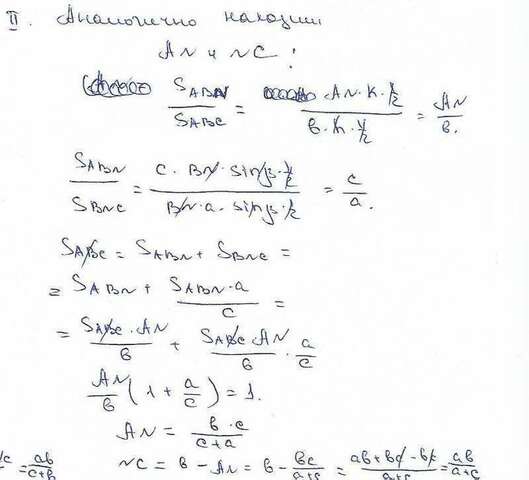 II. Аналогично находим
AN и NC:
S_ABN / S_ABC = AN·K·1/2 / b·h·1/2 = AN / b.
S_ABN / S_BNC = c·BN·sin β·1/2 / BN·a·sin β·1/2 = c / a.
S_ABC = S_ABN + S_BNC =
= S_ABN + S_ABN·a / c =
= S_ABC·AN / b + S_ABC·AN / b · a / c
AN / b (1 + a / c) = 1.
AN = b·c / c+a
c = ab / c+b NC = b - AN = b - bc / a+c = ab+bc-bc / a+c = ab / a+c